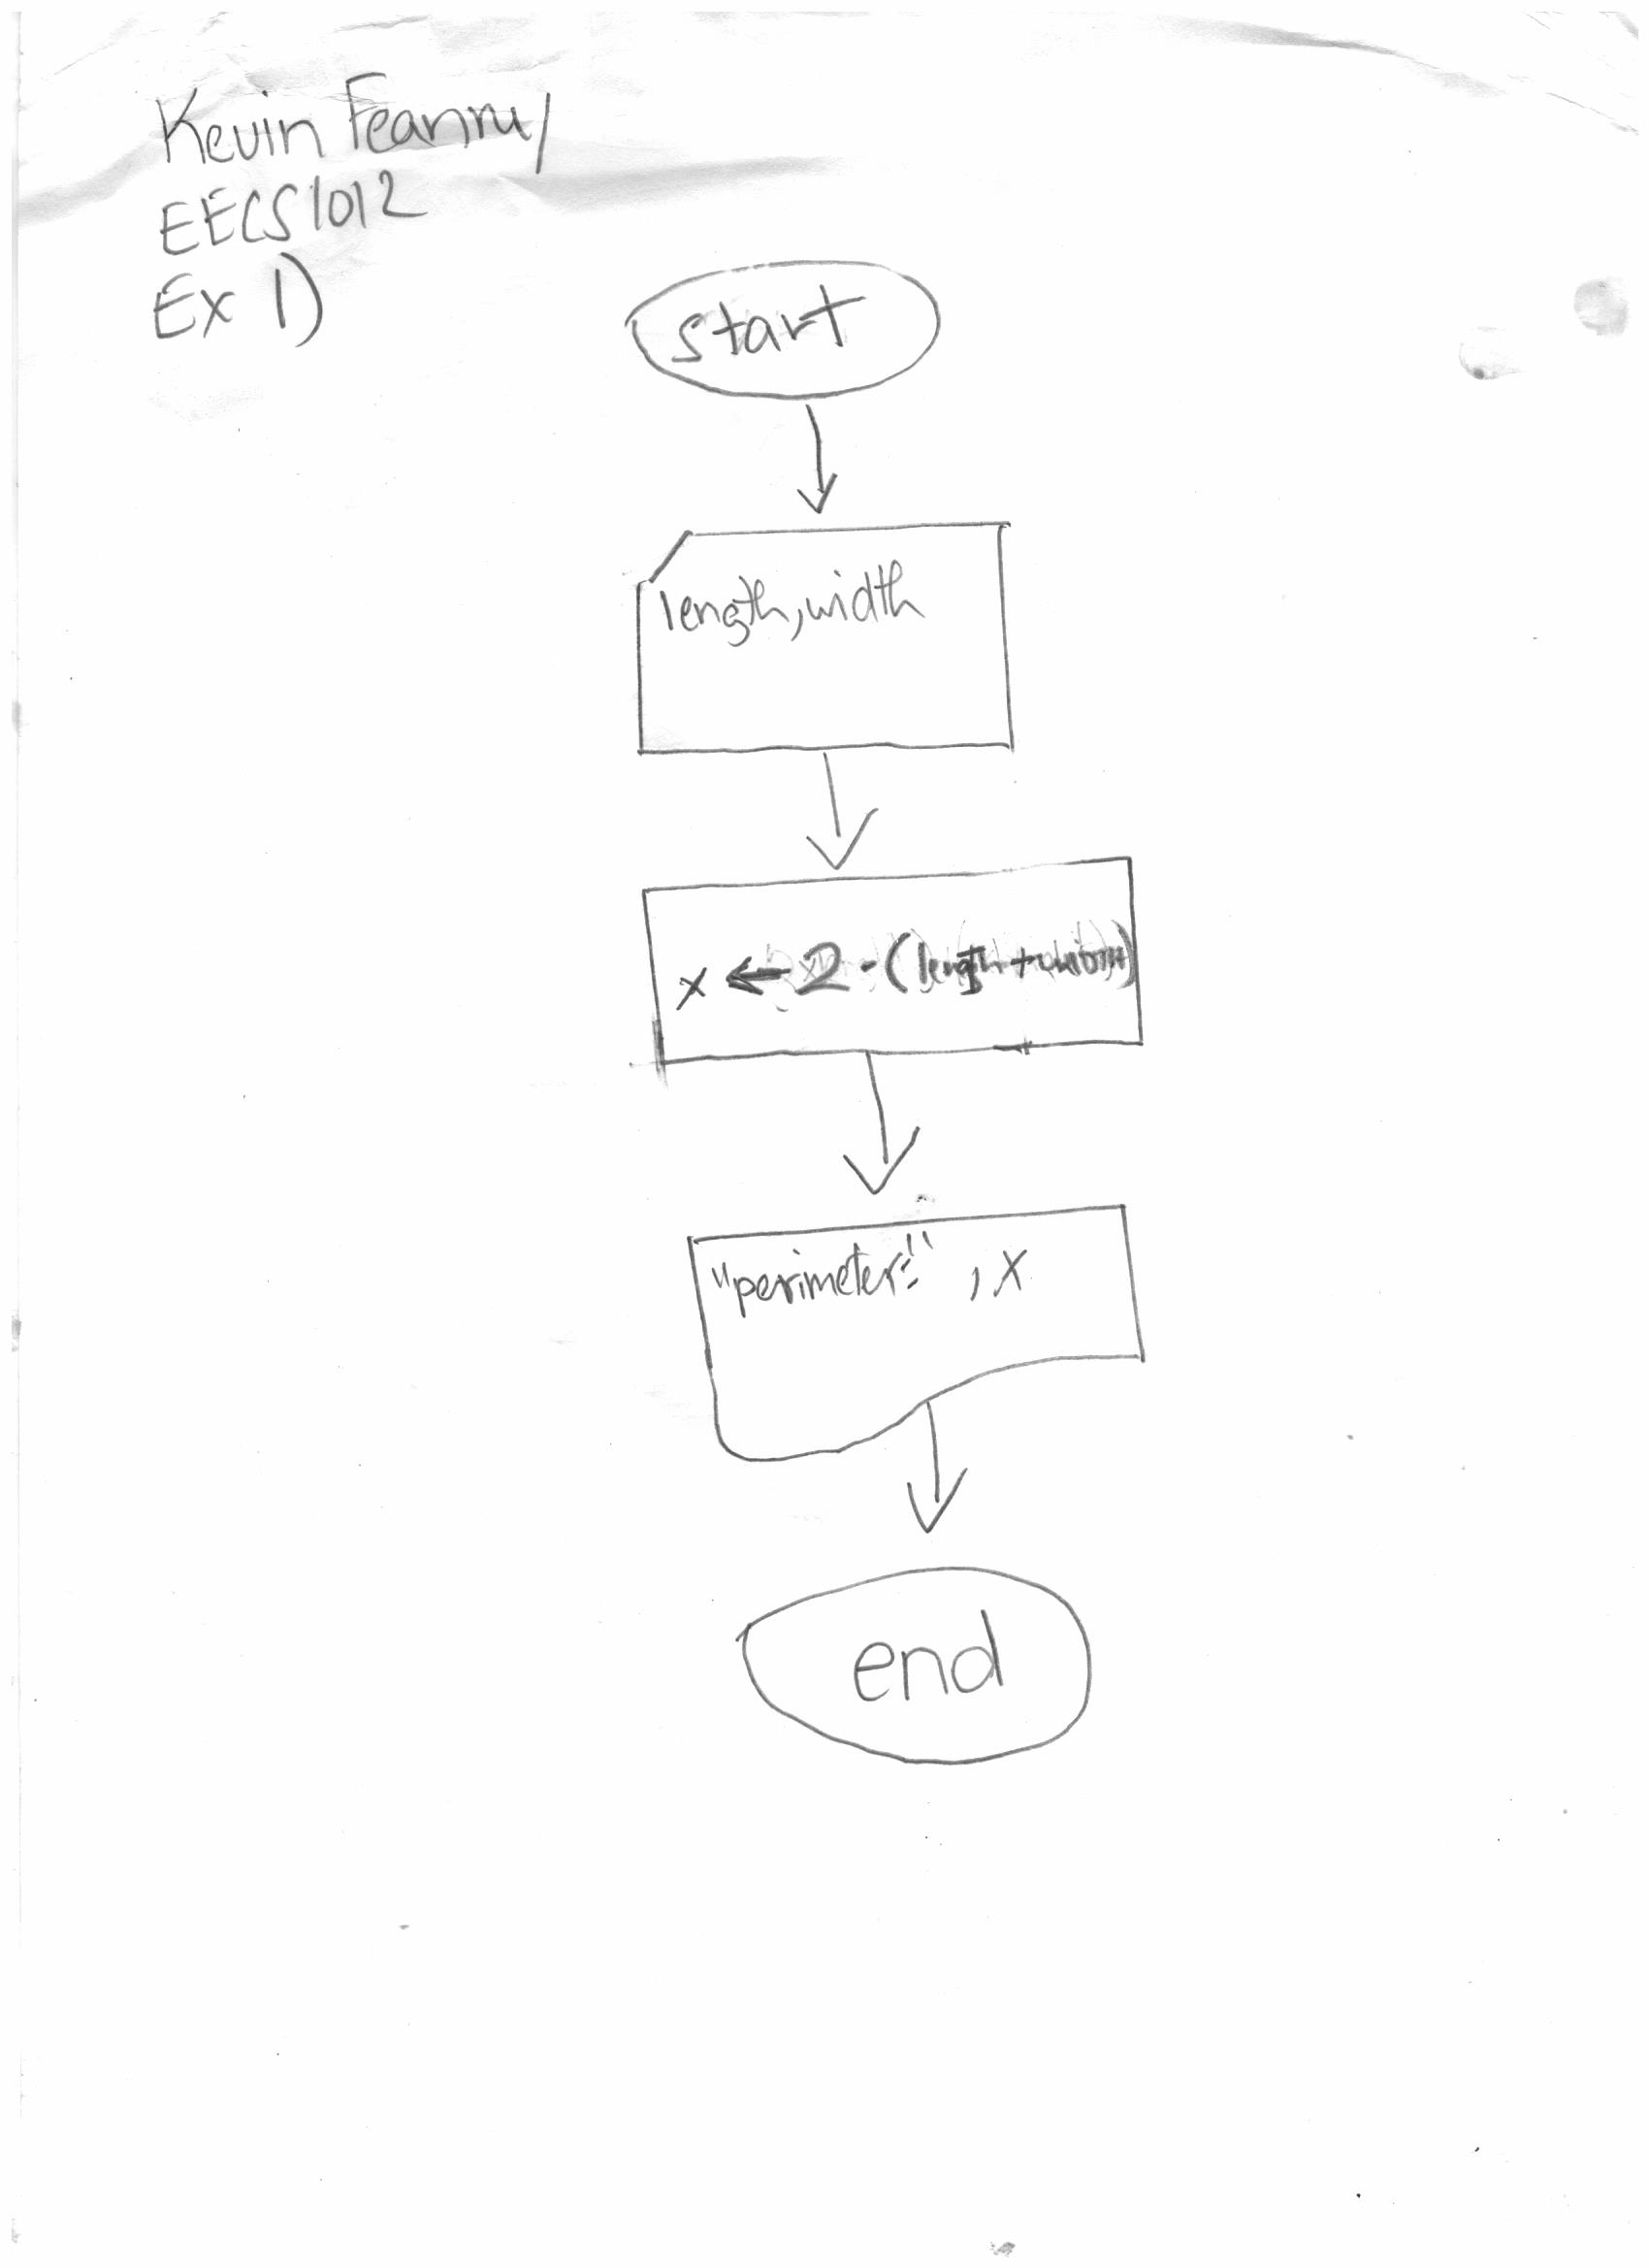 Kevin
EECS1012
Ex 1)
start
length, width
x ← 2 · (length + width)
"perimeter:", x
end